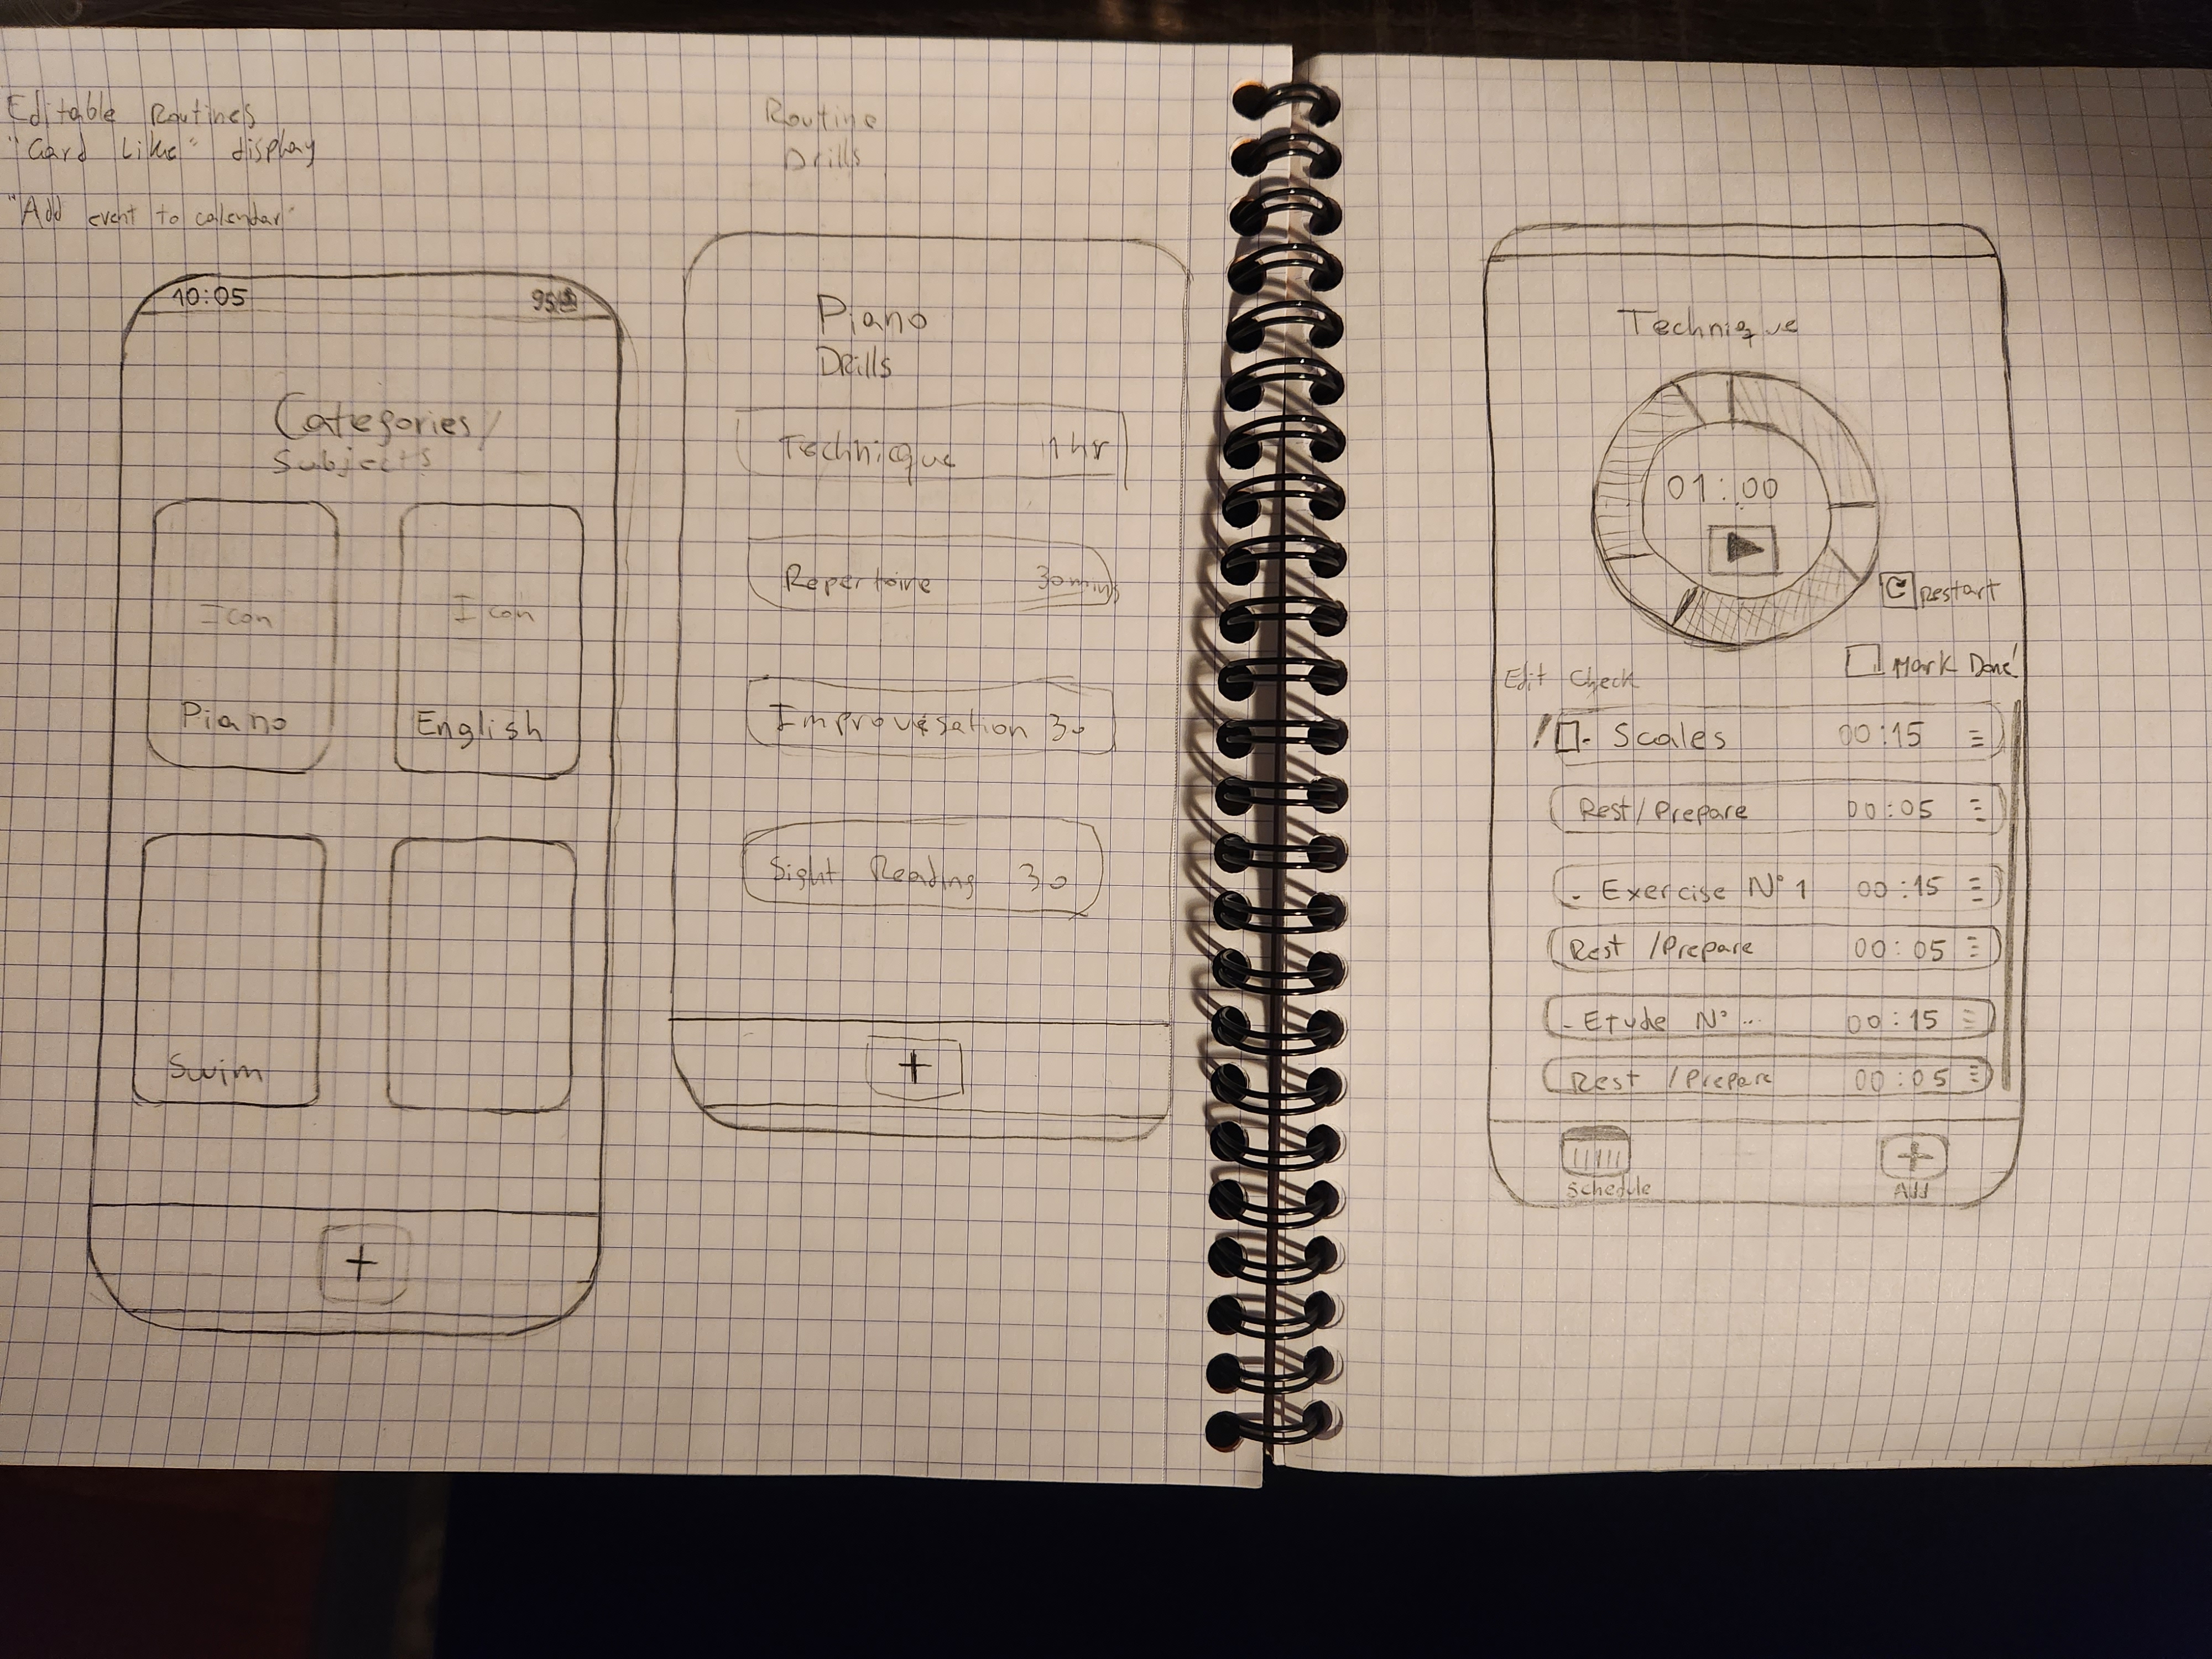 Editable Routines
"Card Like" display
"Add event to calendar"
10:05
Categories/
Subjects
Icon
Icon
Piano
English
Swim
+
Routine
Drills
Piano
Drills
Technicque 1 hr
Repertoire 30 mins
Improvisation 30
Sight Reading 30
+
Technique
01:00
Restart
Mark Done!
Edit Check
- Scales 00:15
Rest/Prepare 00:05
- Exercise N° 1 00:15
Rest /Prepare 00:05
- Etude N° ... 00:15
Rest /Prepare 00:05
Schedule
+
Add